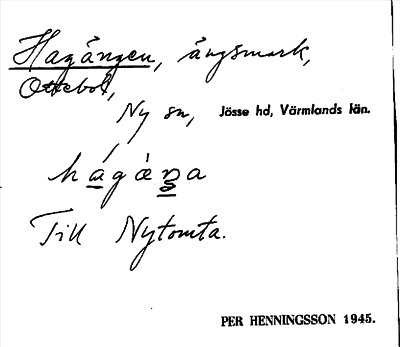 Hagången, ängsmark,
Ottebol,
Ny sn, Jösse hd, Värmlands län.
Till Nytomta.
PER HENNINGSSON 1945.